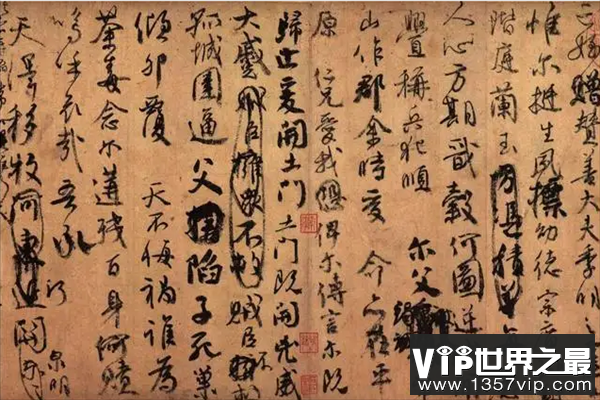 姪贈贊善大夫季明之
惟爾挺生夙標幼德宗
階庭蘭玉方憑積善
人心方期戩穀何圖逆
舋稱兵犯順 爾父
山作郡余時受 命亦在平
原仁兄愛我俾爾傳言爾既
歸止爰開土門土門既開凶威
大蹙賊臣擁眾不救賊臣不
孤城圍逼父陷子死巢
傾卵覆 天不悔禍誰為
荼毒念爾遘殘百身何贖
嗚呼哀哉吾承
天澤移牧河東近河關 泉明
VIP世界之最
www.1357vip.com